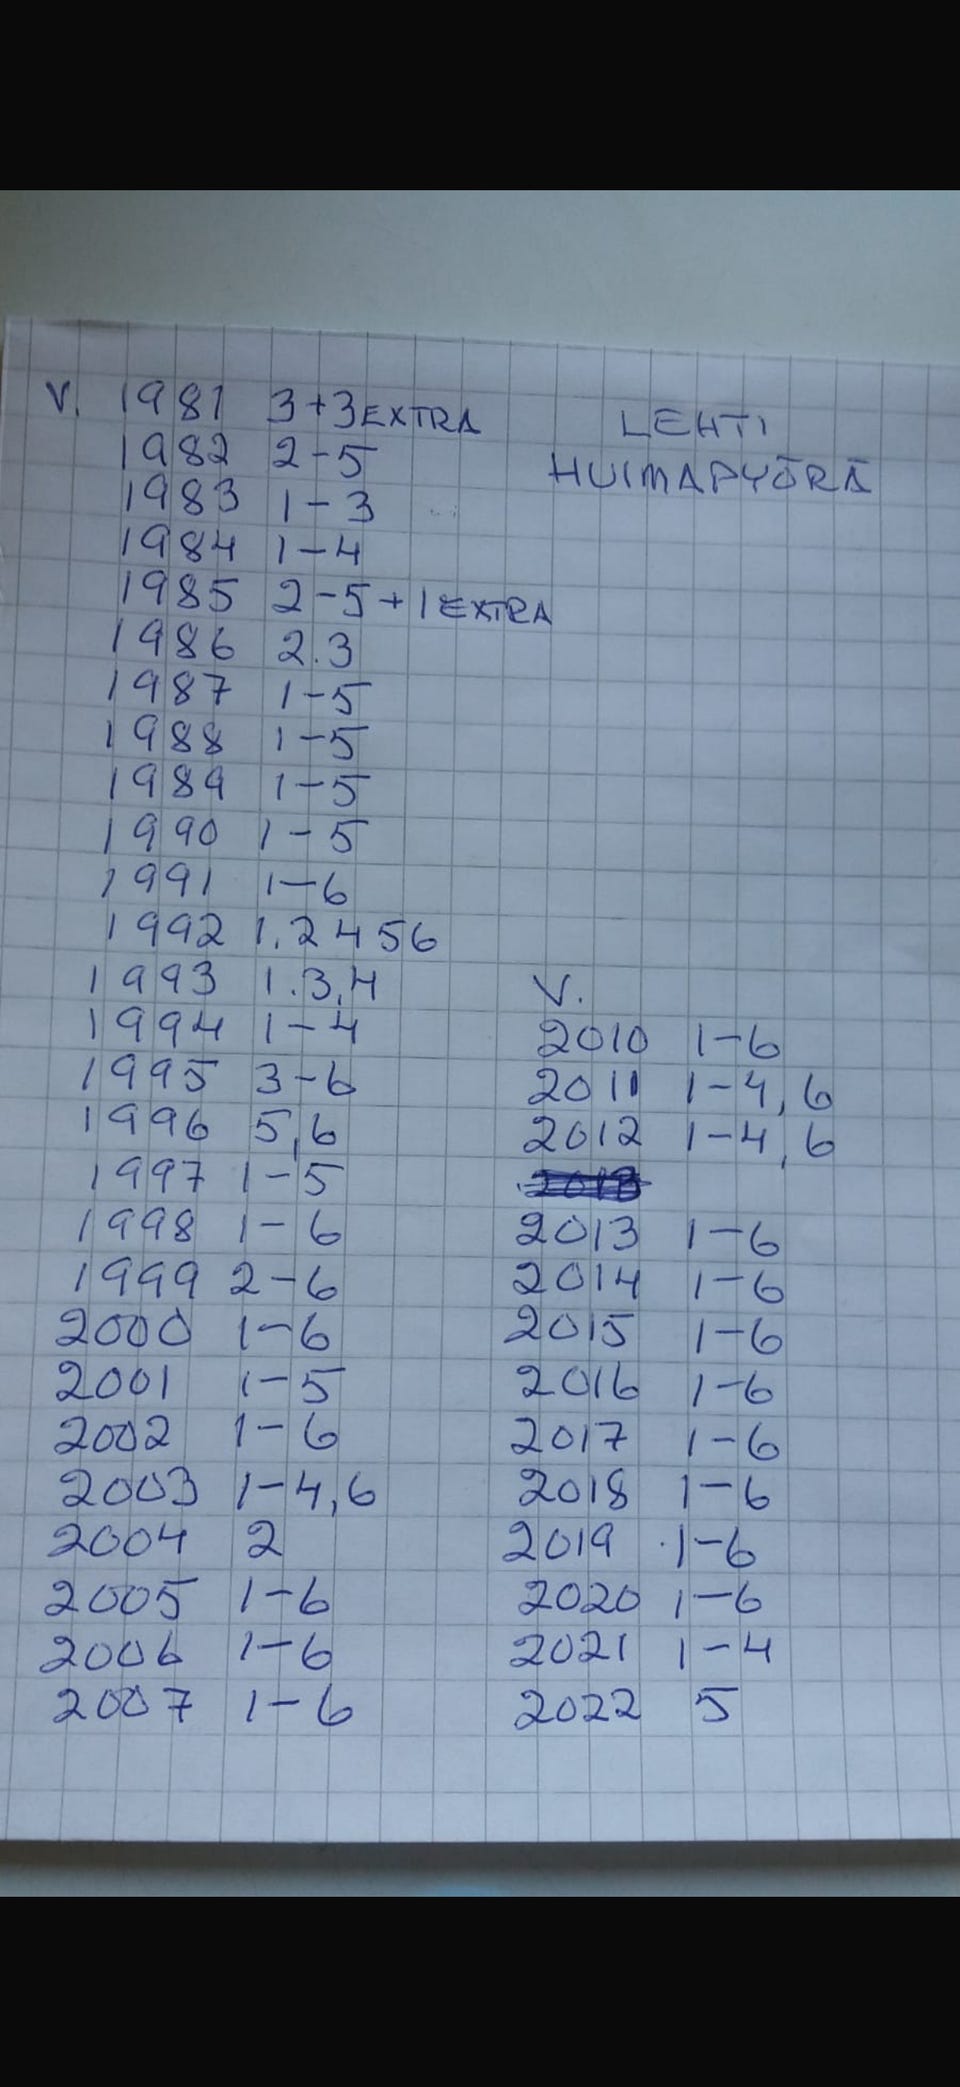 V. 1981 3+3 EXTRA
1982 2-5
1983 1-3
1984 1-4
1985 2-5+1 EXTRA
1986 2.3
1987 1-5
1988 1-5
1989 1-5
1990 1-5
1991 1-6
1992 1.2 4 5 6
1993 1.3,4
1994 1-4
1995 3-6
1996 5,6
1997 1-5
1998 1-6
1999 2-6
2000 1-6
2001 1-5
2002 1-6
2003 1-4,6
2004 2
2005 1-6
2006 1-6
2007 1-6
LEHTI
HUIMAPYÖRÄ
V.
2010 1-6
2011 1-4,6
2012 1-4,6
2013
2013 1-6
2014 1-6
2015 1-6
2016 1-6
2017 1-6
2018 1-6
2019 1-6
2020 1-6
2021 1-4
2022 5